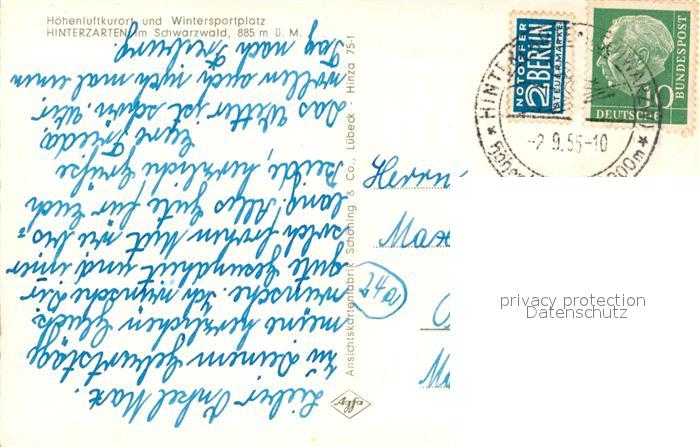 Höhenluftkurort und Wintersportplatz
HINTERZARTEN im Schwarzwald, 885 m ü. M.
Lieber Onkel Max.
Zu Deinem Geburtstage
meine herzlichen Glück-
wünsche. Ich wünsche Dir
gute Gesundheit und immer
solch frohen Mut wie bis-
lang! Alles Gute für Euch
beide, herzliche Grüße
Eure Frieda.
Das Wetter ist schön. Wir
wollen auch noch mal einen
Tag nach Freiburg.
Ansichtskartenfabrik Schöning & Co., Lübeck - Hinza 75-f
Agfa
NOTOPFER
2 BERLIN
STEUERMARKE
DEUTSCHE
BUNDESPOST
10
-2.9.55-10
Herrn
Max
24a
privacy protection
Datenschutz